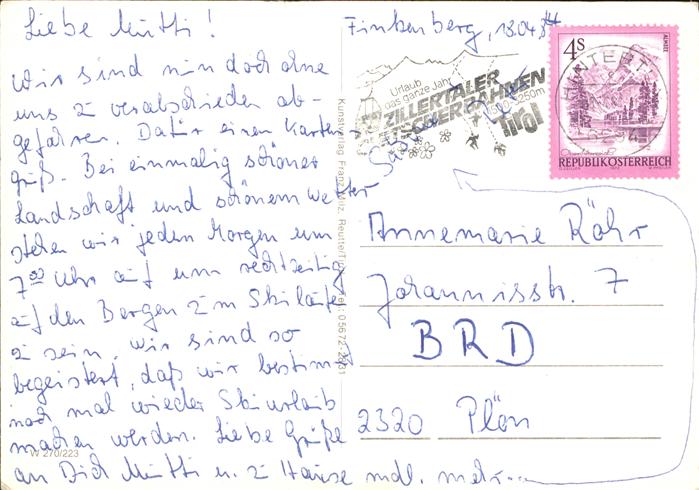 Liebe Mutti!
Finkenberg, 13.04.84
Wir sind nun doch ohne
uns z verabschieden ab-
gefahren. Dafür einen Karten-
gruß. Bei einmalig schöner
Landschaft und schönem Wetter
stehen wir jeden Morgen um
7⁰⁰ Uhr auf um rechtzeitig
auf den Bergen zum Skilaufen
z sein. Wir sind so
begeistert, daß wir bestimmt
noch mal wieder Skiurlaub
machen werden. Liebe Grüße
an Dich Mutti u. z Hause mdl. mehr...
W 270/223
Kunstverlag Franz Milz, Reutte/Tirol, Tel.: 05672
Urlaub
das ganze Jahr
ZILLERTALER
GLETSCHERBAHNEN
3250m
Tirol
HINTERTUX
4S
ALMSEE
REPUBLIK ÖSTERREICH
Annemarie Röhr
Johannisstr. 7
BRD
2320 Plön